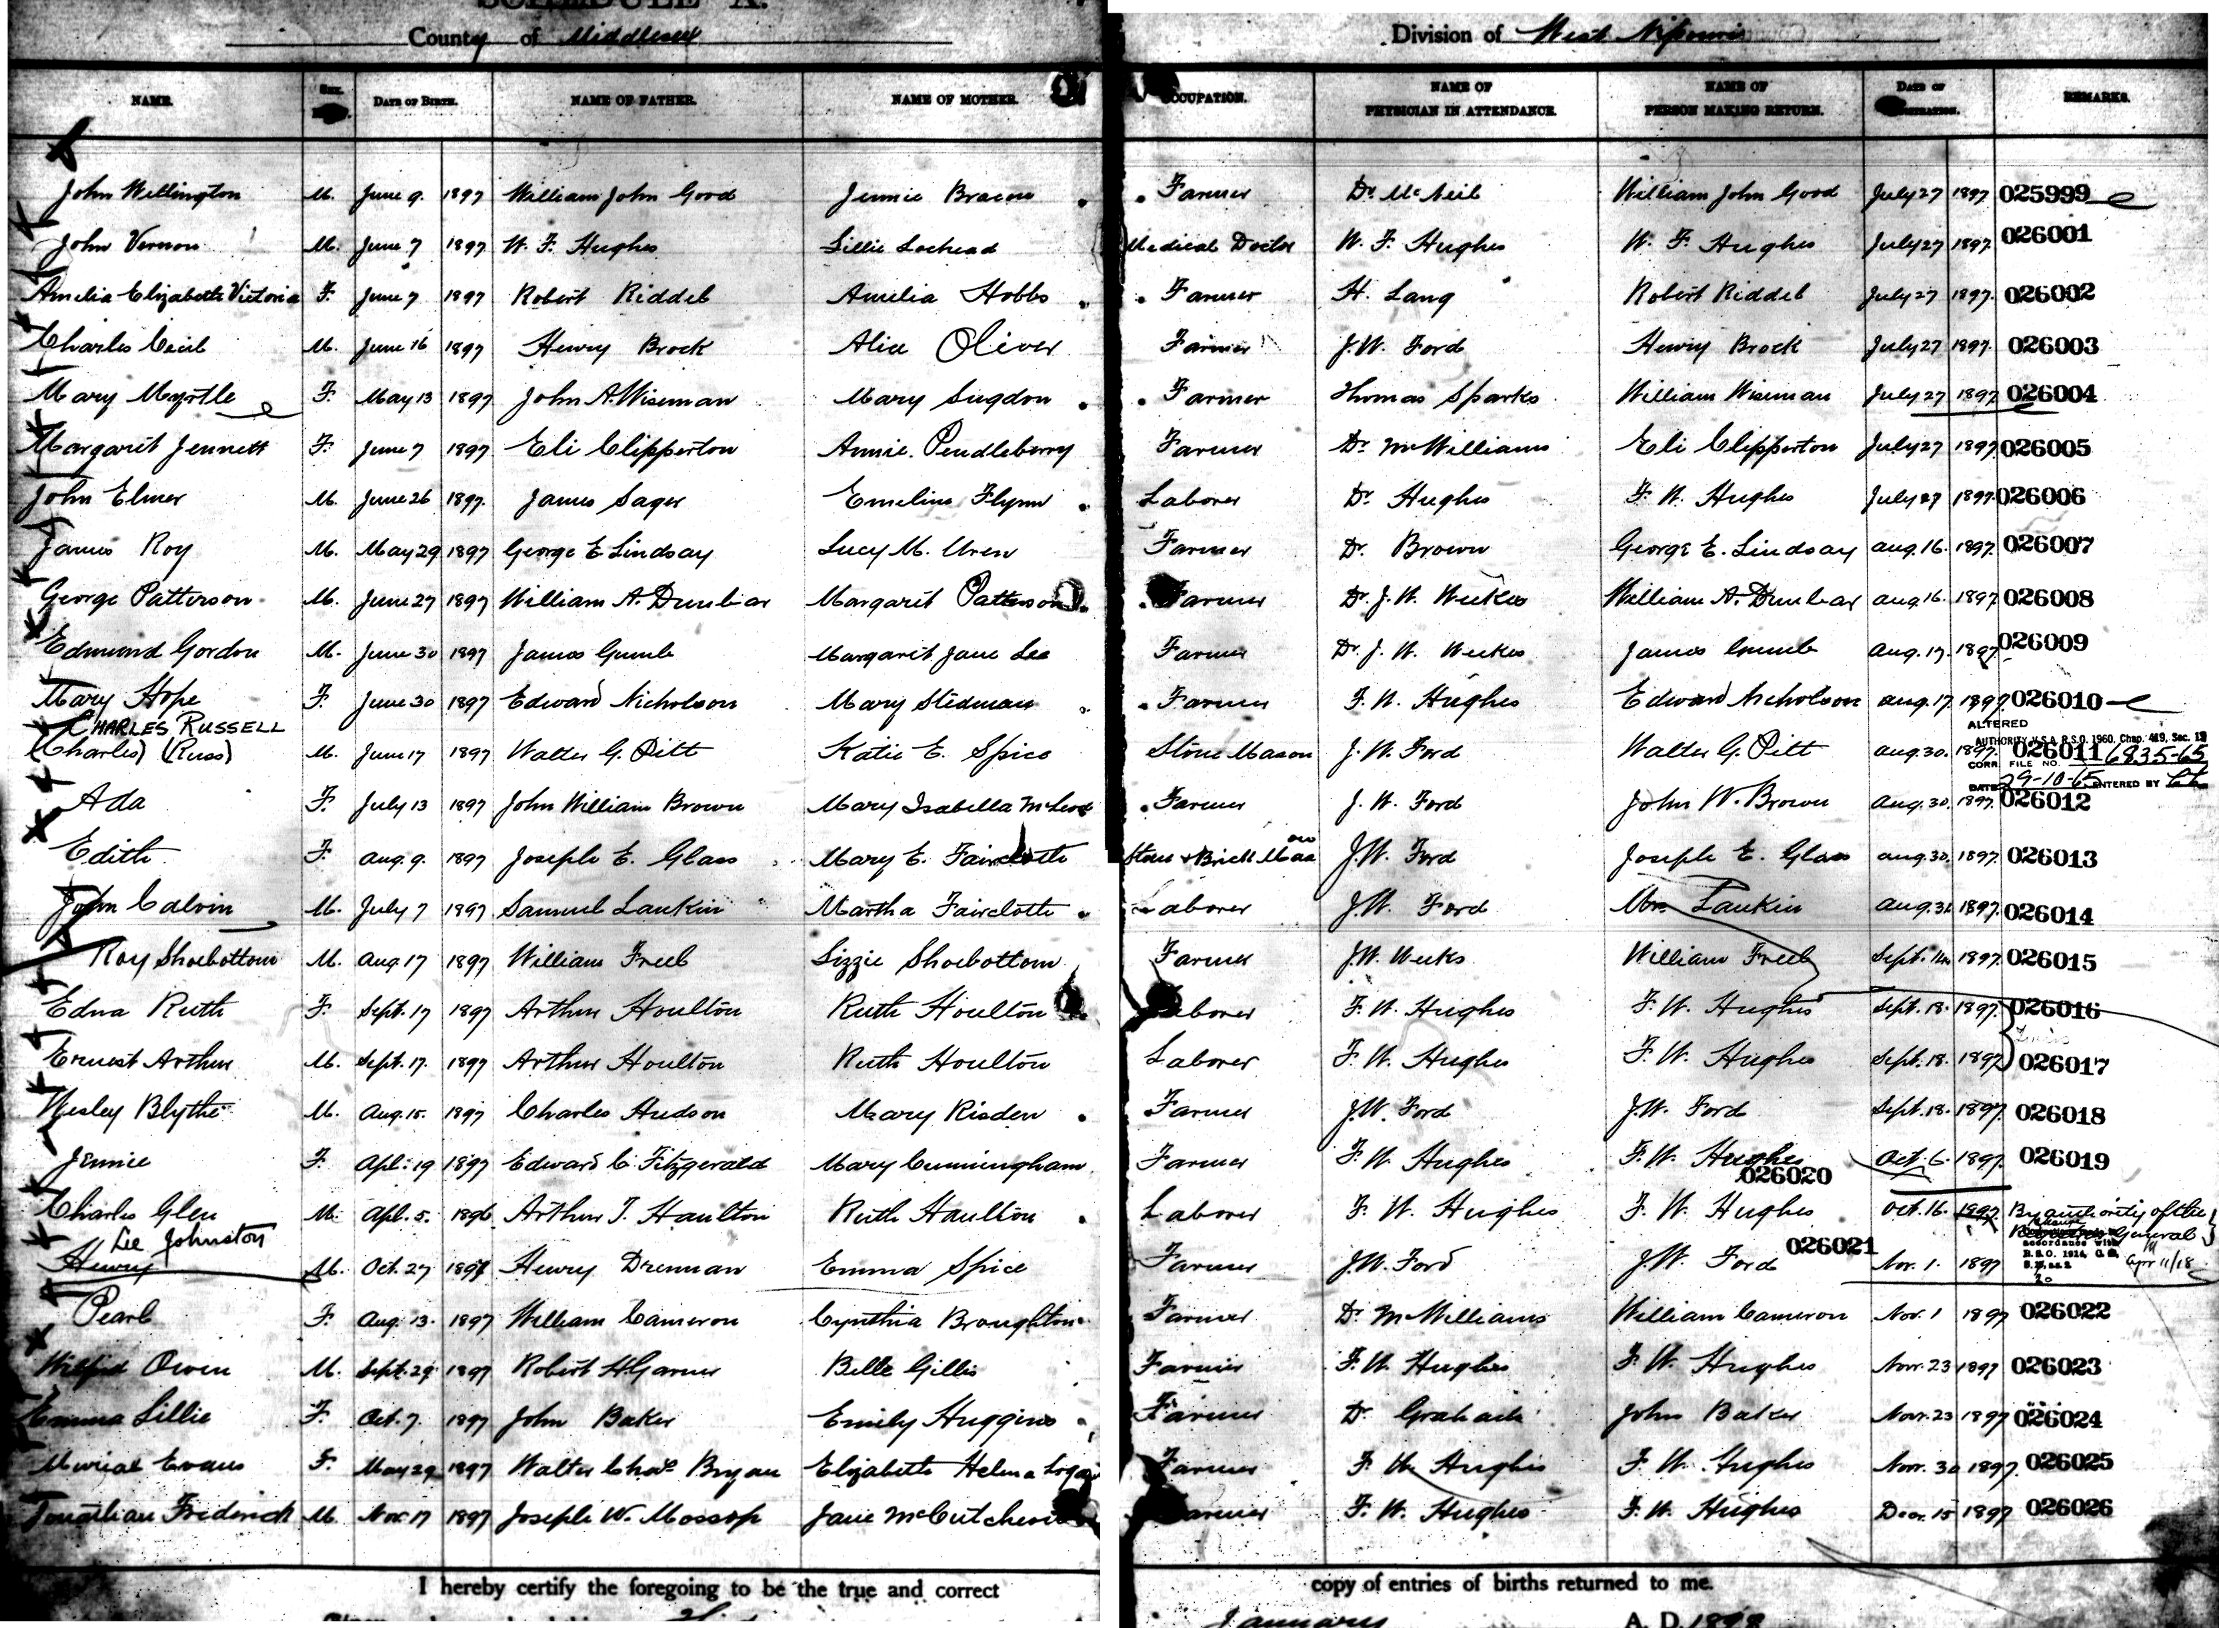 SCHEDULE A.
County of Middlesex Division of West Nissouri
NAME. Sex. DATE OF BIRTH. NAME OF FATHER. NAME OF MOTHER. OCCUPATION. NAME OF PHYSICIAN IN ATTENDANCE. NAME OF PERSON MAKING RETURN. DATE OF REGISTRATION. REMARKS.
John Wellington M. June 9. 1897 William John Good Jennie Bracon Farmer Dr McNeil William John Good July 27 1897 025999
John Vernon M. June 7 1897 W. F. Hughes Lillie Lochead Medical Doctor W. F. Hughes W. F. Hughes July 27 1897. 026001
Amelia Elizabeth Victoria F. June 7 1897 Robert Riddel Amelia Hobbs Farmer H. Lang Robert Riddel July 27 1897. 026002
Charles Cecil M. June 16 1897 Henry Brock Alice Oliver Farmer J. W. Ford Henry Brock July 27 1897. 026003
Mary Myrtle F. May 13 1897 John A. Wiseman Mary Sugdon Farmer Thomas Sparks William Wiseman July 27 1897 026004
Margarit Jennett F. June 7 1897. Eli Clipperton Annie. Pendleberry Farmer Dr McWilliams Eli Clipperton July 27 1897 026005
John Elmer M. June 26 1897. James Sager Emeline Flynn Laborer Dr Hughes F. W. Hughes July 27 1897 026006
James Roy M. May 29 1897 George E Lindsay Lucy M. Uren Farmer Dr Brown George E. Lindsay Aug. 16. 1897. 026007
George Patterson M. June 27 1897 William A. Dunbar Margarit Patterson Farmer Dr. J. W. Weekes William A. Dunbar Aug. 16. 1897. 026008
Edmund Gordon M. June 30 1897 James Gumb Margarit Jane Lee Farmer Dr. J. W. Weekes James Gumb Aug. 17. 1897 026009
Mary Hope F. June 30 1897 Edward Nicholson Mary Stedman Farmer F. W. Hughes Edward Nicholson Aug. 17 1897 026010
CHARLES RUSSELL
(Charles) (Russ) M. June 17 1897 Walter G. Pitt Katie E. Spice Stone Mason J. W. Ford Walter G. Pitt Aug. 30. 1897. 026011
ALTERED
AUTHORITY V.S.A. R.S.O. 1960, Chap. 419, Sec. 19
CORR. FILE NO. 6835-65
DATE 29-10-65 ENTERED BY
Ada F. July 13 1897 John William Brown Mary Isabella McLeod Farmer J. W. Ford John W. Brown Aug. 30. 1897. 026012
Edith F. Aug. 9. 1897 Joseph E. Glass Mary E. Faircloth Stone & Brick Mason J. W. Ford Joseph E. Glass Aug. 30. 1897. 026013
John Calvin M. July 7 1897 Samuel Lankin Martha Faircloth Laborer J. W. Ford Mrs Lankin Aug. 31. 1897. 026014
Roy Shoebottom M. Aug 17 1897 William Freel Lizzie Shoebottom Farmer J. W. Weeks William Freel Sept. 1897. 026015
Edna Ruth F. Sept. 17 1897 Arthur Houlton Ruth Houlton Laborer F. W. Hughes F. W. Hughes Sept. 18. 1897. 026016
Ernest Arthur M. Sept. 17. 1897 Arthur Houlton Ruth Houlton Laborer F. W. Hughes F. W. Hughes Sept. 18. 1897 026017
Wesley Blythe M. Aug. 15. 1897 Charles Hudson Mary Risden Farmer J. W. Ford J. W. Ford Sept. 18. 1897. 026018
Jennie F. Apl. 19 1897 Edward C. Fitzgerald Mary Cunningham Farmer F. W. Hughes F. W. Hughes Oct. 6. 1897. 026019
026020
Charles Glen M. Apl. 5. 1896 Arthur T. Haulton Ruth Haulton Laborer F. W. Hughes F. W. Hughes Oct. 16. 1897 By authority of the General
Lie Johnston
Henry M. Oct. 27 1897 Henry Drennan Emma Spice Farmer J. W. Ford J. W. Ford 026021 Nov. 1. 1897 Apr 11/18
Pearl F. Aug. 13. 1897 William Cameron Cynthia Broughton Farmer Dr McWilliams William Cameron Nov. 1 1897 026022
Wilfid Owen M. Sept. 29 1897 Robert H. Garner Belle Gillis Farmer F. W. Hughes F. W. Hughes Nov. 23 1897 026023
Emma Lillie F. Oct. 7. 1897 John Baker Emily Huggins Farmer Dr Graham John Baker Nov. 23 1897 026024
Murial Evans F. May 29 1897 Walter Chas Bryan Elizabeth Helena Logan Farmer F. W. Hughes F. W. Hughes Nov. 30 1897. 026025
Jonathan Frederick M. Nov. 17 1897 Joseph W. Mossop Jane McCutcheon Farmer F. W. Hughes F. W. Hughes Dec. 15 1897 026026
I hereby certify the foregoing to be the true and correct copy of entries of births returned to me.
January A. D. 1898